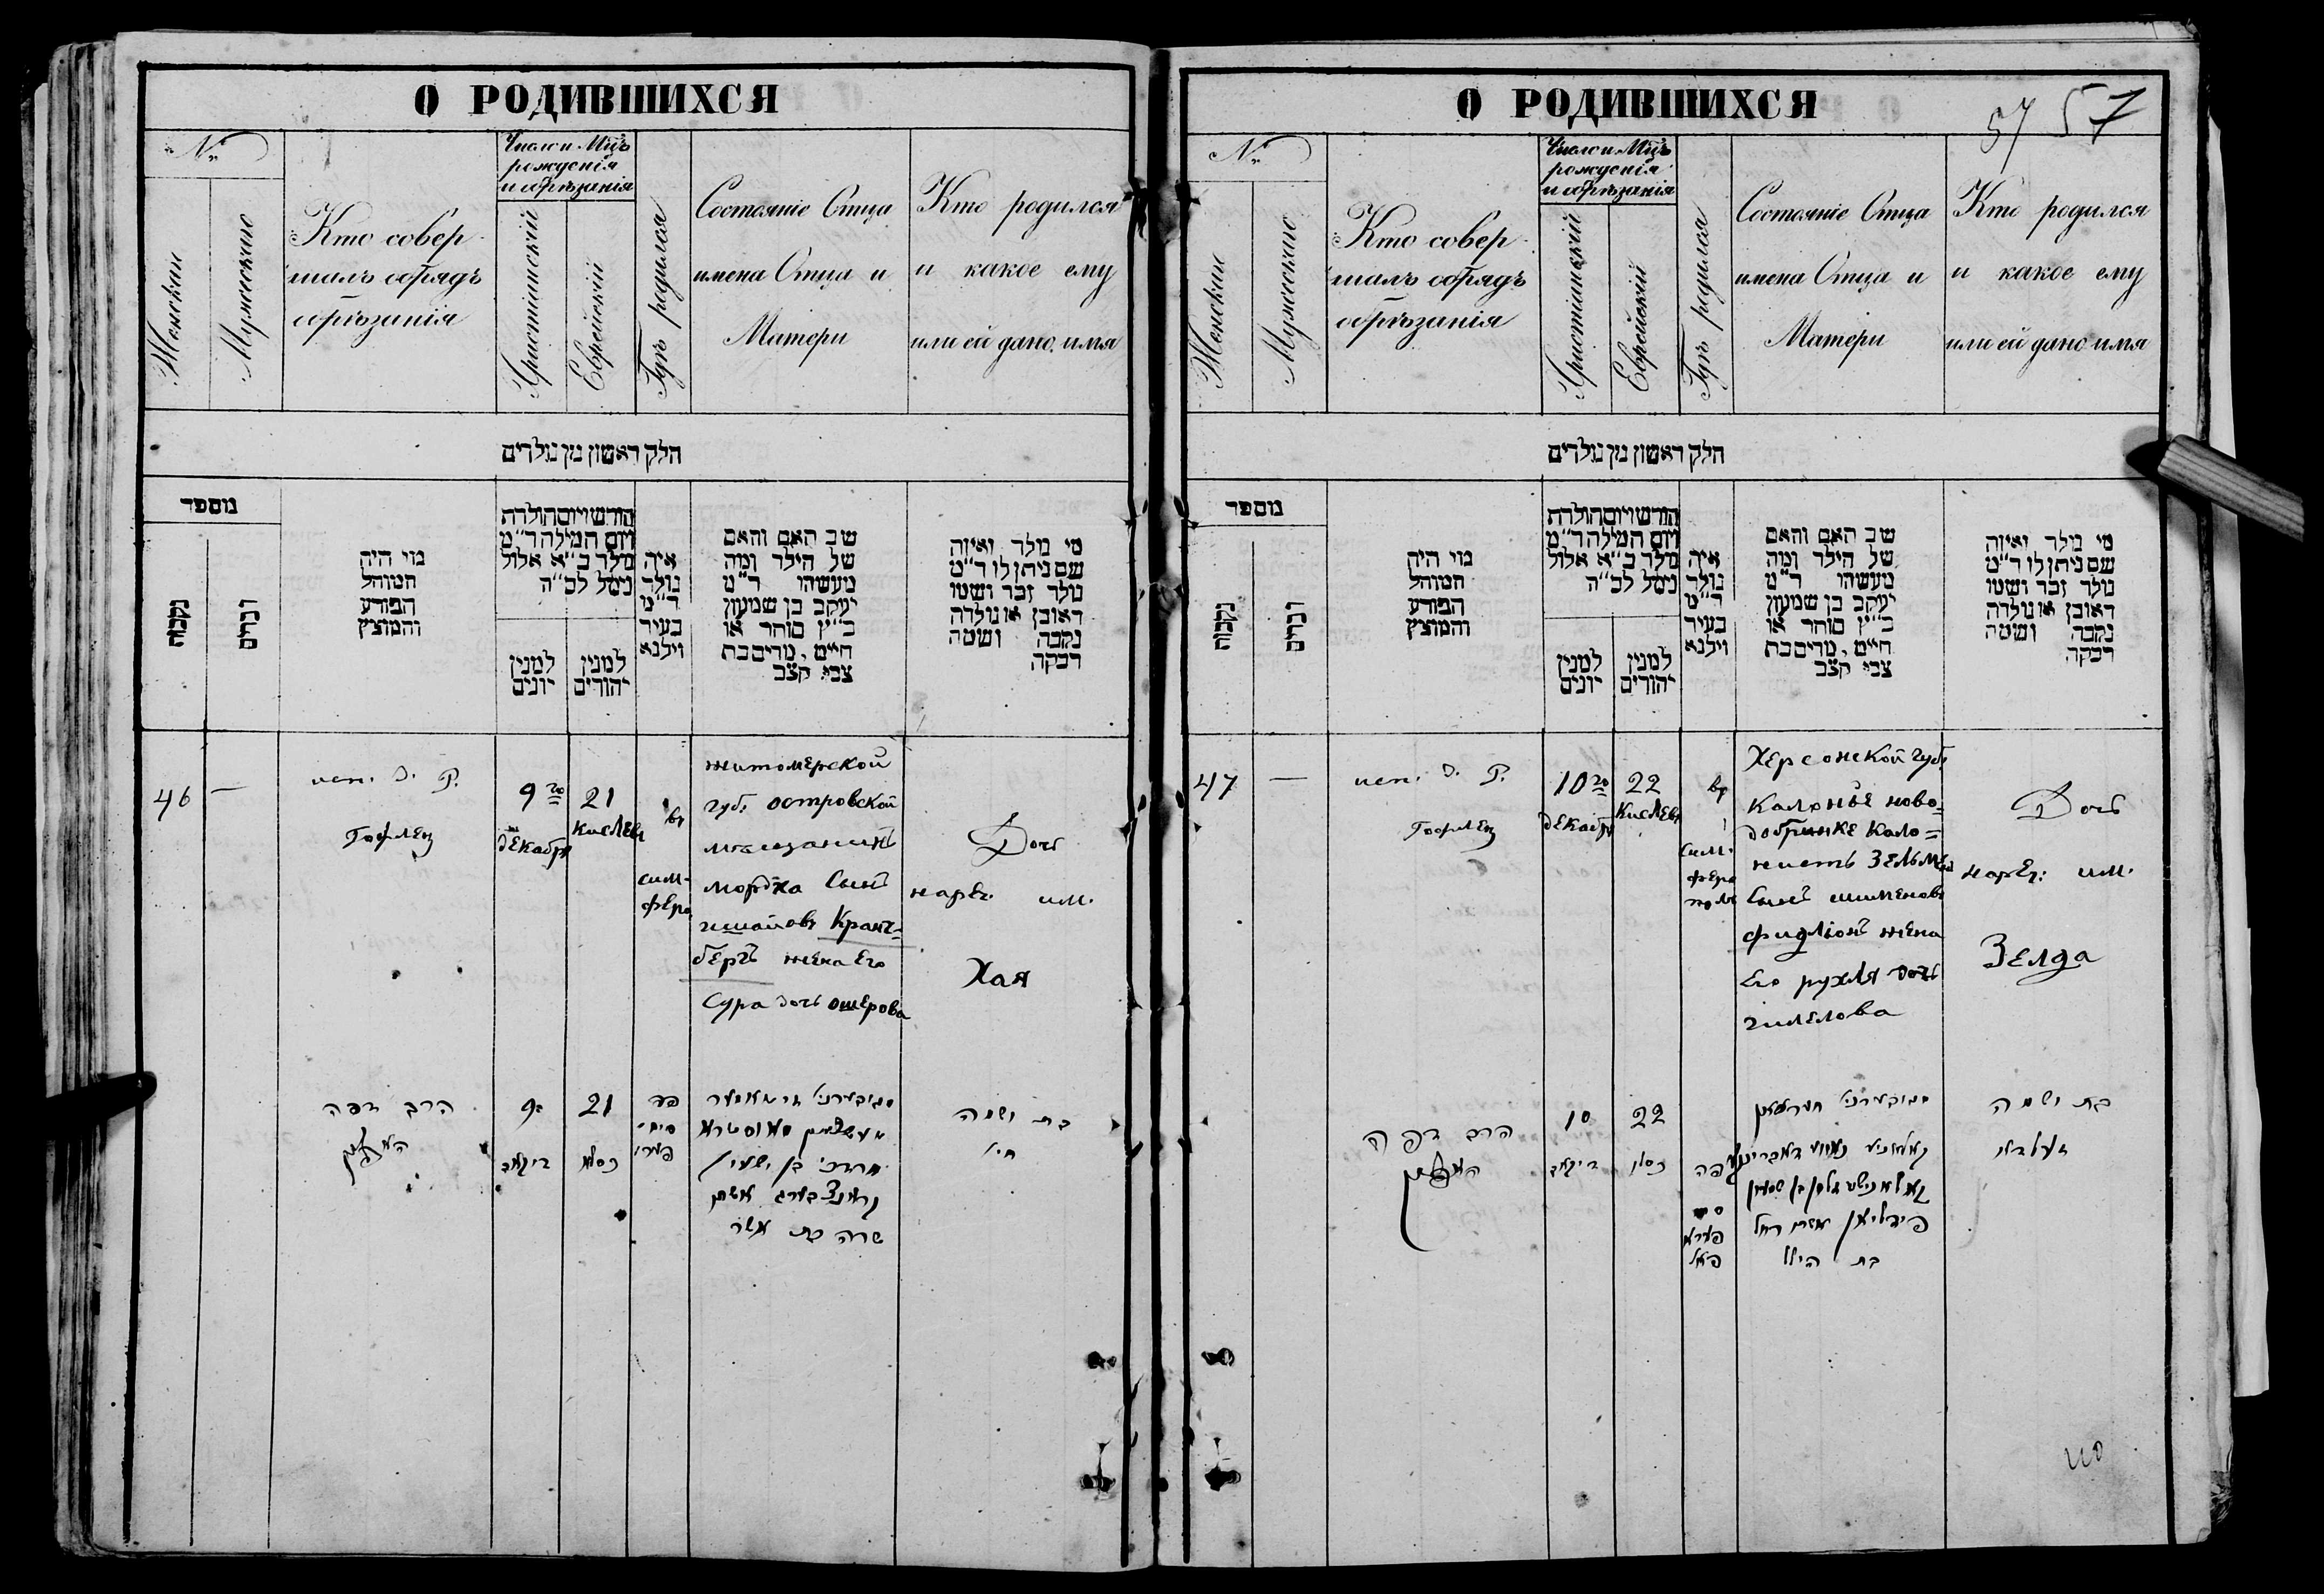 О РОДИВШИХСЯ
№
Женскии
Мужескиио
Кто совер-
шалъ обрядъ
обрѣзанія
Число и Мцъ
рожденія
и обрѣзанія
Христіанскій
Еврейскій
Гдѣ родился
Состояніе Отца
имена Отца и
Матери
Кто родился
и какое ему
или ей дано имя
חלק ראשון מן נולדים
מספר
נקבות
זכרים
מי היה
המוהל
הפורע
והמוצץ
חודש ויום הולדת
ויום המילה ד״מ
נולד ב״א אלול
נימל לכ״ה
למנין
יונים
למנין
יהודים
איה
נולד
ד״מ
בעיר
וילנא
שב האם והאם
של הילד ומה
מעשהו ד״מ
יעקב בן שמעון
כ״ץ סוחר או
חייט, מרים בת
צבי קצב
מי נולד ואיזה
שם ניתן לו ד״מ
נולד זכר ושמו
ראובן או נולדה
נקבה ושמה
רבקה
46 —
исп. д. Р.
Гофлец
9 го
декабря
21
кислевъ
въ
сим-
феро
житомерской
губ. островской
мещанинъ
мордка Сынъ
ишаіовъ Кранц=
бергъ жена Его
Сура дочь ошерова
Дочь
нареч. им.
Хая
הרב דפה
9
דיקאב
21
כסלו
פה
סימ
פערו
מרדכי בן ישעי׳
קראנצבערג אשתו
שרה בת אשר
בת ושמה
חי׳
О РОДИВШИХСЯ
57 57
№
Женскии
Мужескиио
Кто совер-
шалъ обрядъ
обрѣзанія
Число и Мцъ
рожденія
и обрѣзанія
Христіанскій
Еврейскій
Гдѣ родился
Состояніе Отца
имена Отца и
Матери
Кто родился
и какое ему
или ей дано имя
חלק ראשון מן נולדים
מספר
נקבות
זכרים
מי היה
המוהל
הפורע
והמוצץ
חודש ויום הולדת
ויום המילה ד״מ
נולד ב״א אלול
נימל לכ״ה
למנין
יונים
למנין
יהודים
איה
נולד
ד״מ
בעיר
וילנא
שב האם והאם
של הילד ומה
מעשהו ד״מ
יעקב בן שמעון
כ״ץ סוחר או
חייט, מרים בת
צבי קצב
מי נולד ואיזה
שם ניתן לו ד״מ
נולד זכר ושמו
ראובן או נולדה
נקבה ושמה
רבקה
47 —
исп. д. Р.
Гофлец
10 го
декабр
22
кислевъ
въ
сим-
феро
поль
Херсонской губ.
Калоніе ново=
добринке Коло=
нистъ Зельмен
Сынъ шименовъ
фидліонъ жена
Его рухля дочь
гилелова
Дочь
нареч: им.
Зелда
הרב דפה
10
דיקאב
22
כסלו
פה
סימ
פערא
פאל
פידליאן אשתו רחל
בת הילל
בת ושמה
זעלדא